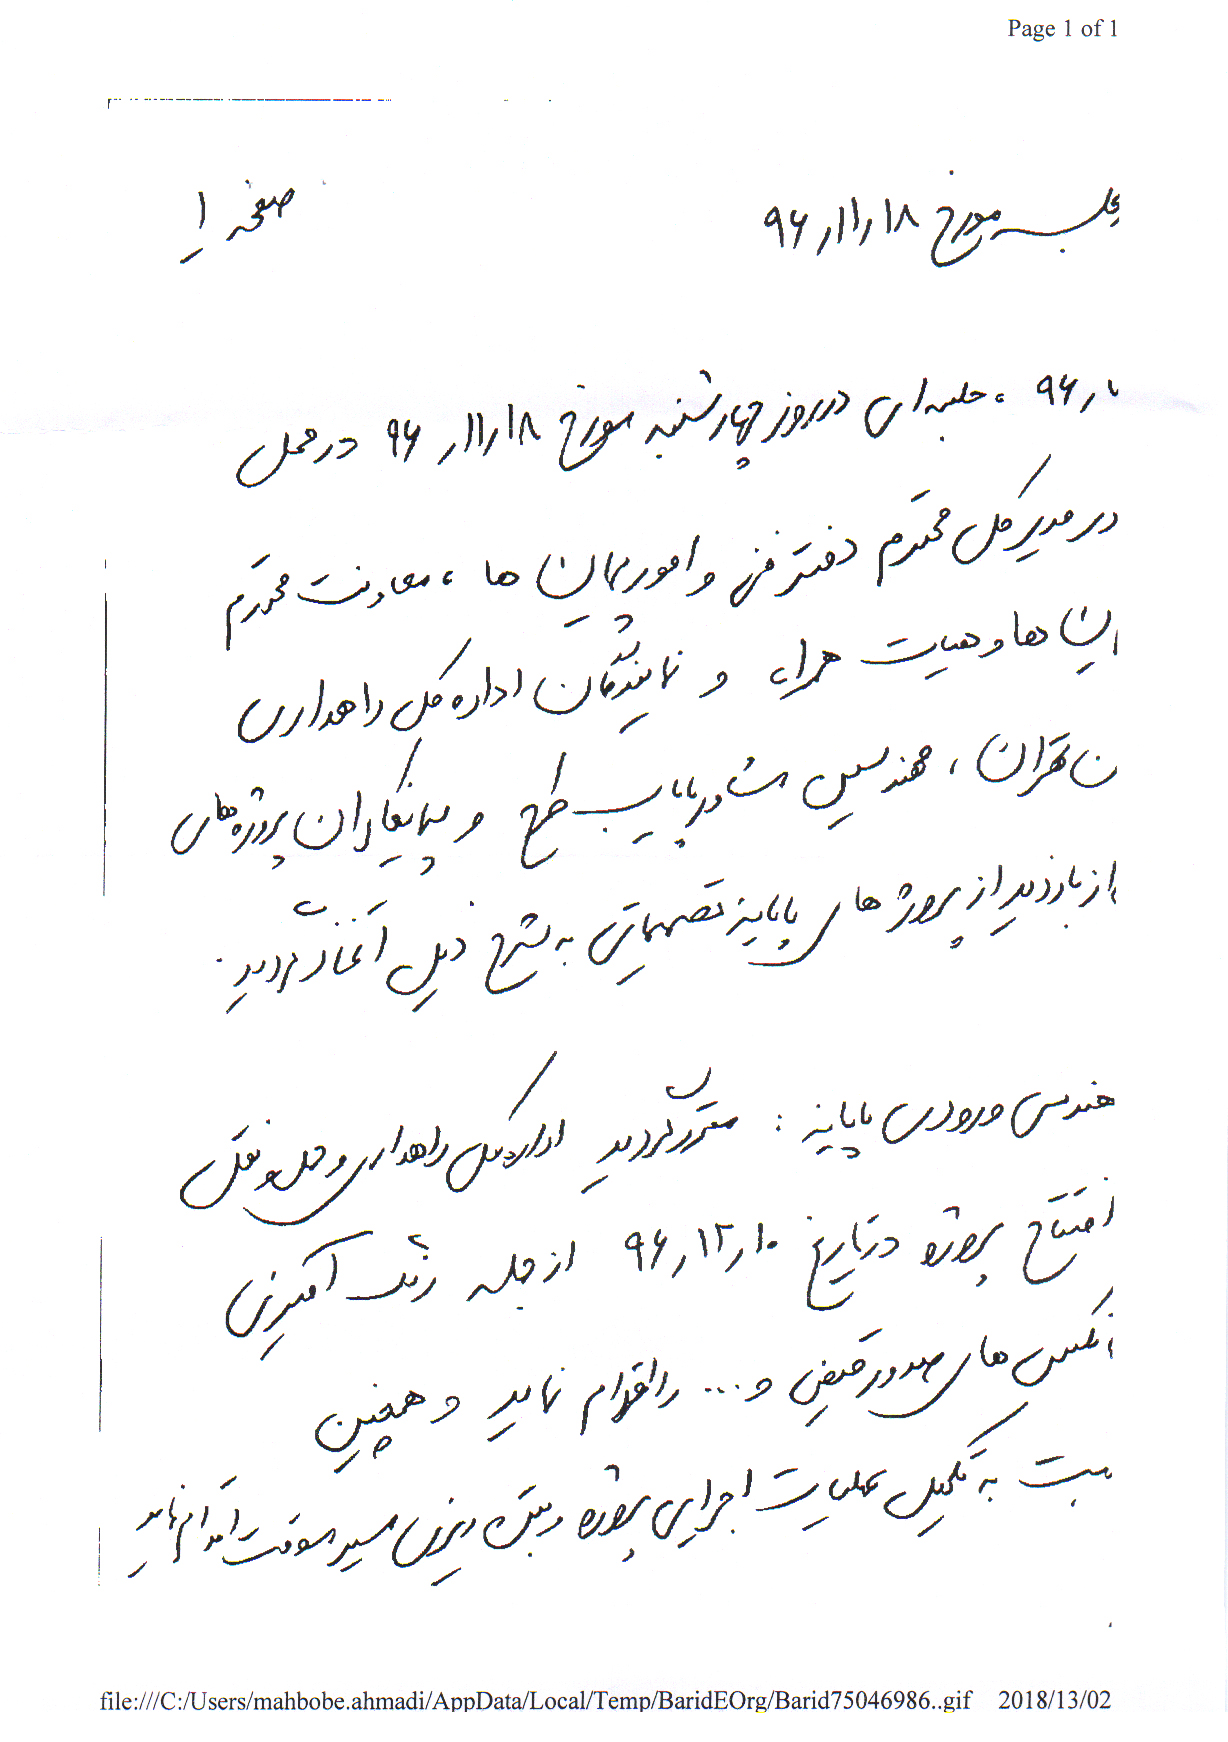 Page 1 of 1
جلسه مورخ ۹۶٫۱۱٫۱۸
صفحه ۱
۹۶ ، جلسه ای در روز چهارشنبه مورخ ۹۶٫۱۱٫۱۸ در محل
در مدیر کل محترم دفتر فنی و امور پیمان ها ، معاونت محترم
ها و هیات همراه و نمایندگان اداره کل راهداری
ن تهران ، مهندسین مشاور پایاب سطح و پیمانکاران پروژه های
از بازدید از پروژه های پایانه تصمیماتی به شرح ذیل آغاز گردید .
هندسی ورودی پایانه : مقرر گردید اداره کل راهداری و حمل و نقل
افتتاح پروژه در تاریخ ۹۶٫۱۲٫۱۰ از جمله رنگ آمیزی
های صدور قبض و ... را اقدام نماید و همچنین
سبت به تکمیل عملیات اجرایی پروژه و بتن ریزی مسیر موقت اقدام نماید
file:///C:/Users/mahbobe.ahmadi/AppData/Local/Temp/BaridEOrg/Barid75046986..gif 2018/13/02